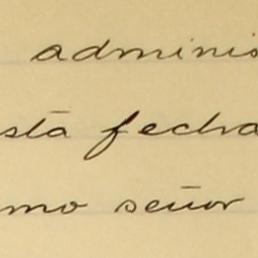 adminis
sta fecha
mo señor